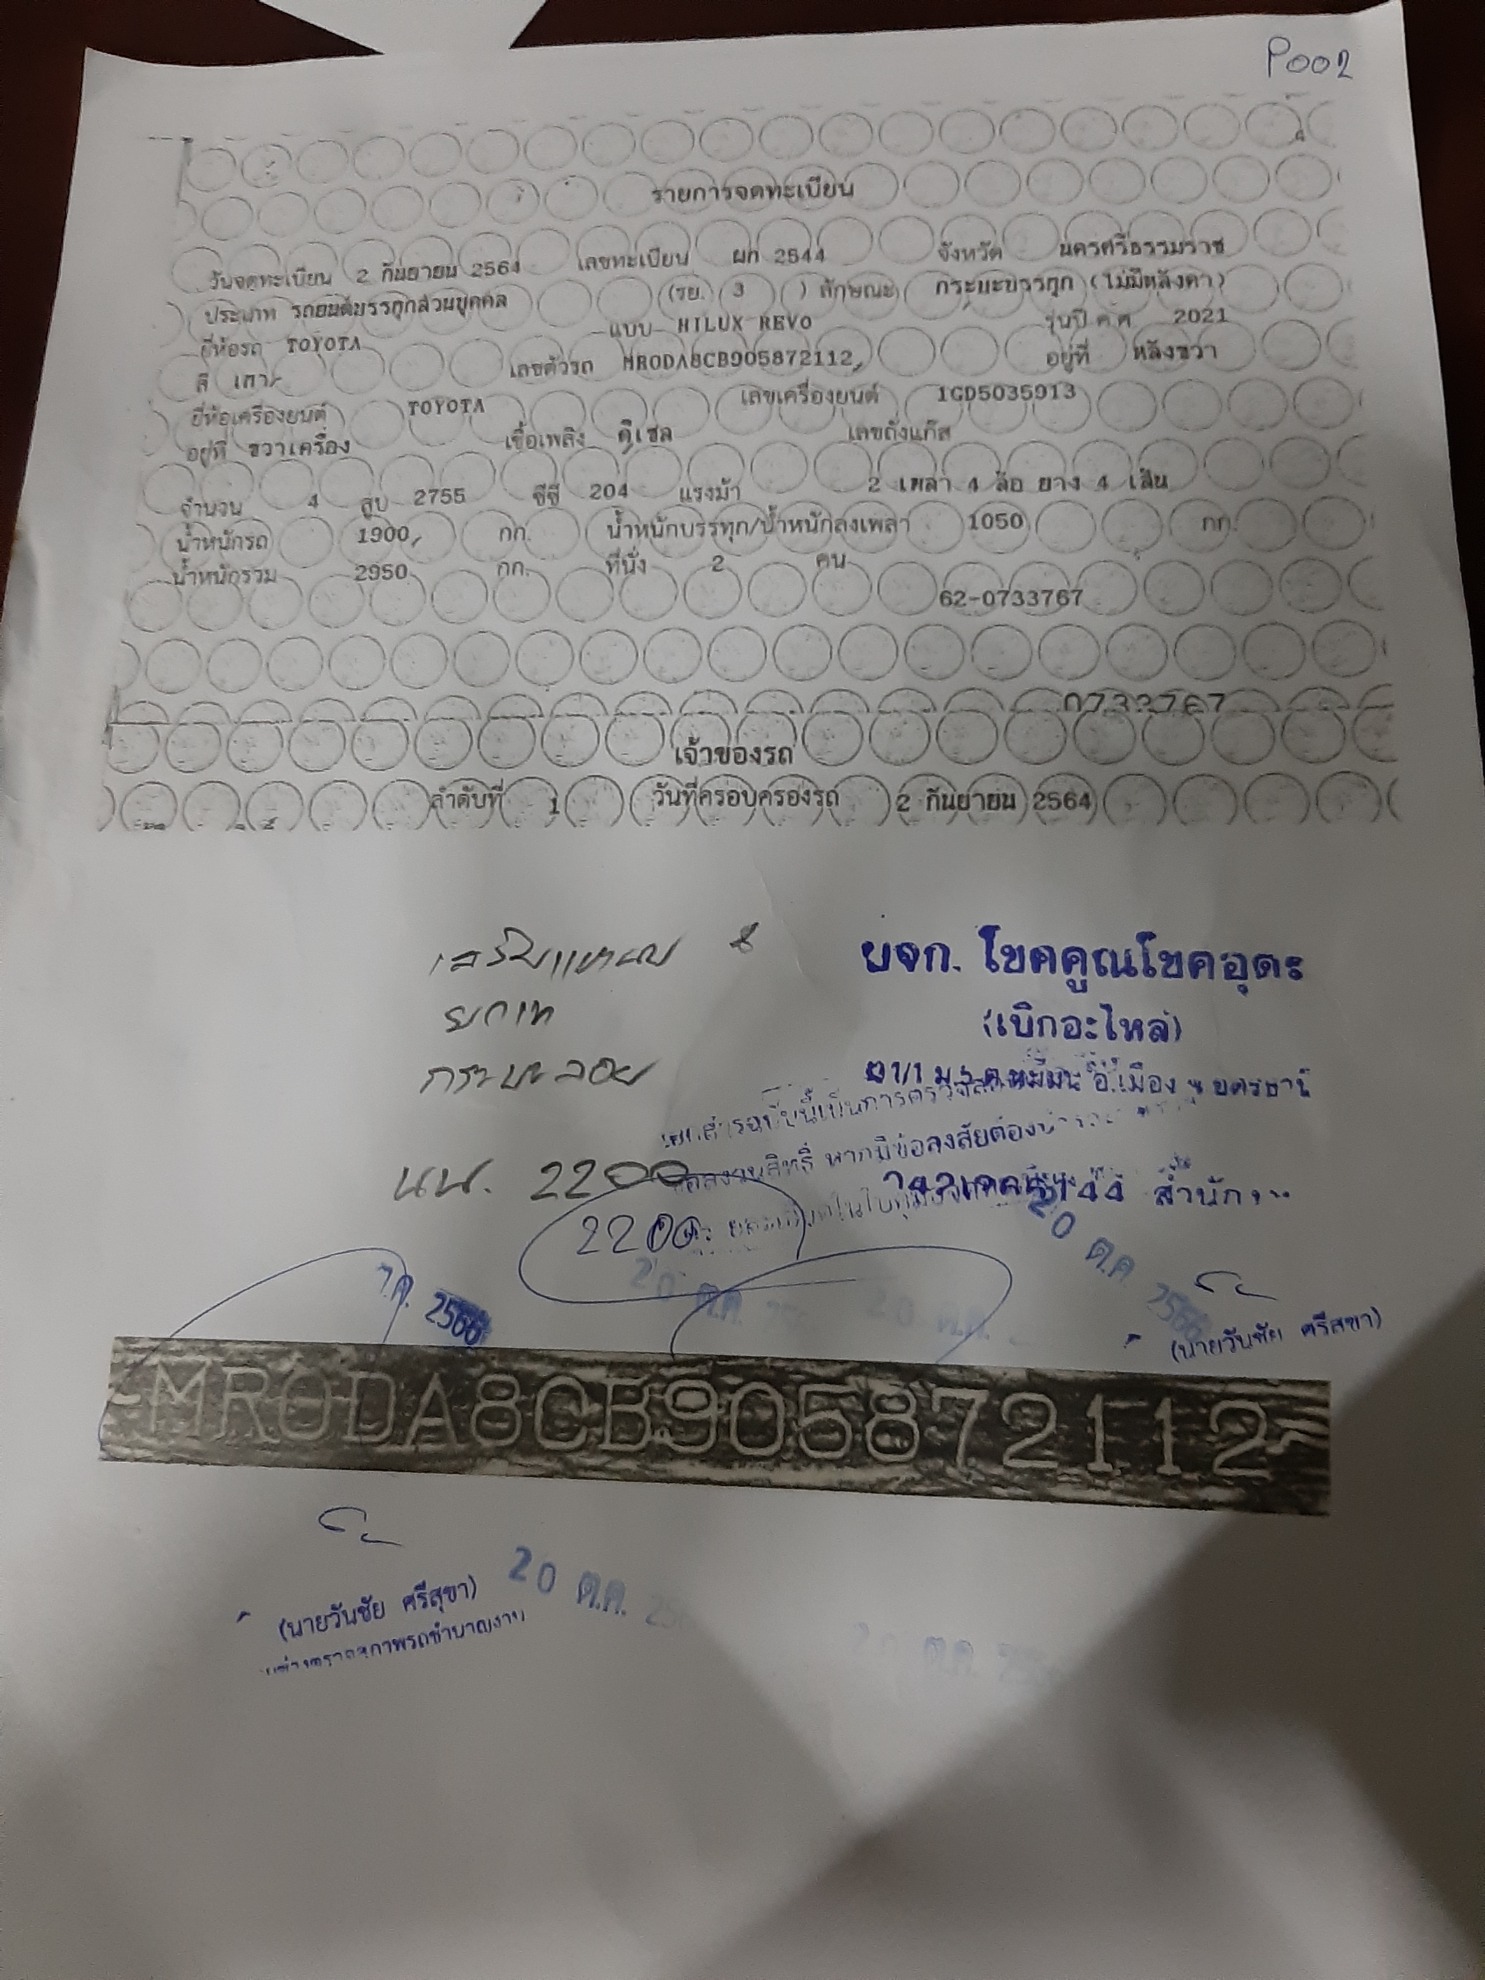 P002
รายการจดทะเบียน
วันจดทะเบียน 2 กันยายน 2564 เลขทะเบียน ผก 2544 จังหวัด นครศรีธรรมราช
ประเภท รถยนต์บรรทุกส่วนบุคคล (รย. 3 ) ลักษณะ กระบะบรรทุก (ไม่มีหลังคา)
ยี่ห้อรถ TOYOTA แบบ HILUX REVO รุ่นปี ค.ศ. 2021
สี เทา เลขตัวรถ MR0DA8CB905872112, อยู่ที่ หลังขวา
ยี่ห้อเครื่องยนต์ TOYOTA เลขเครื่องยนต์ 1GD5035913
อยู่ที่ ขวาเครื่อง เชื้อเพลิง ดีเซล เลขถังแก๊ส
จำนวน 4 สูบ 2755 ซีซี 204 แรงม้า 2 เพลา 4 ล้อ ยาง 4 เส้น
น้ำหนักรถ 1900, กก. น้ำหนักบรรทุก/น้ำหนักลงเพลา 1050 กก.
น้ำหนักรวม 2950 กก. ที่นั่ง 2 คน
62-0733767
0733767
เจ้าของรถ
ลำดับที่ 1 วันที่ครอบครองรถ 2 กันยายน 2564
เสริมแหนบ
ยกเท
กระบะลอย
นน. 2200
2200
หจก. โชคคูณโชคอุดร
(เบิกอะไหล่)
อ.เมือง
หากมีข้อสงสัยต้อง
20 ต.ค. 2566
ต.ค. 2566
20 ต.ค.
20 ต.ค.
(นายวันชัย ศรีสุขา)
MR0DA8CB905872112
(นายวันชัย ศรีสุขา)
20 ต.ค.
20 ต.ค.